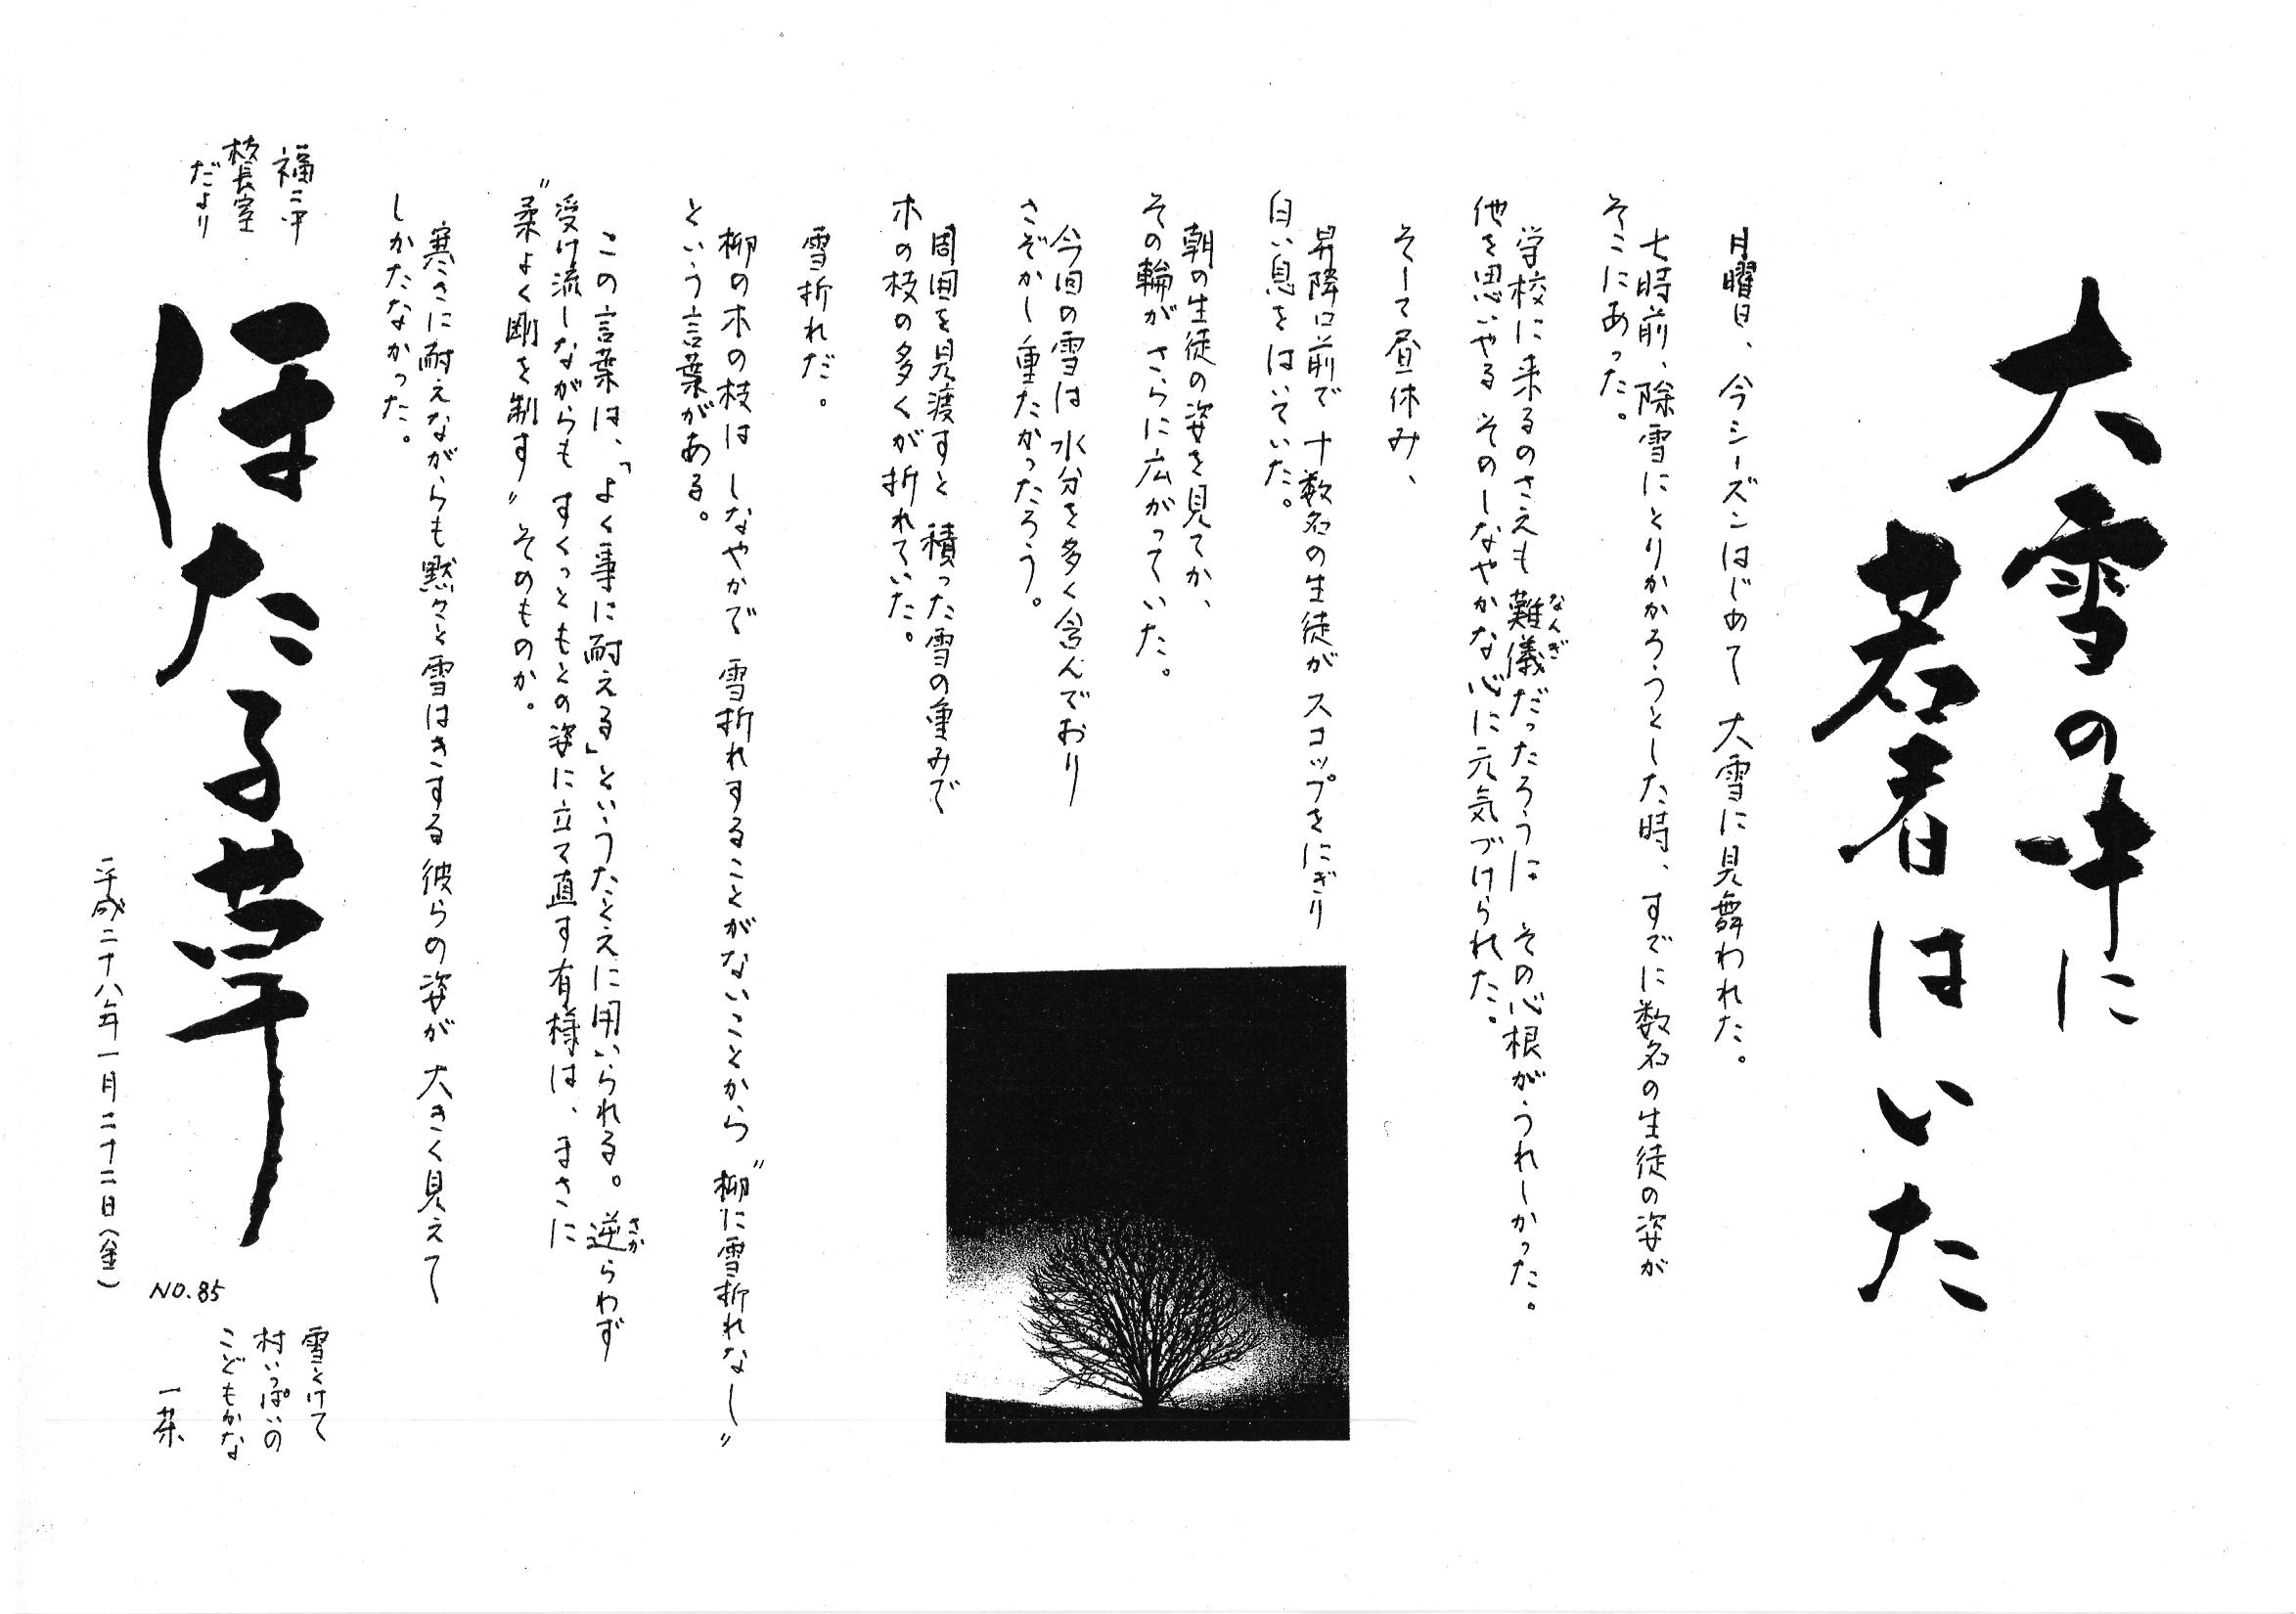 大雪の中に
若者はいた
月曜日、今シーズンはじめて 大雪に見舞われた。
七時前、除雪にとりかかろうとした時、すでに数名の生徒の姿が
そこにあった。
学校に来るのさえも難儀だったろうに その心根がうれしかった。
なんぎ
他を思いやる そのしなやかな心に元気づけられた。
そして昼休み、
昇降口前で 十数名の生徒が スコップをにぎり
白い息をはいていた。
朝の生徒の姿を見てか、
その輪が さらに広がっていた。
今回の雪は 水分を多く含んでおり
さぞかし重たかったろう。
周囲を見渡すと 積った雪の重みで
木の枝の多くが折れていた。
雪折れだ。
柳の木の枝は しなやかで 雪折れすることがないことから "柳に雪折れなし"
という言葉がある。
この言葉は、「よく事に耐える」というたとえに用いられる。逆らわず
さか
受け流しながらも すくっともとの姿に立て直す有様は、まさに
"柔よく剛を制す" そのものか。
寒さに耐えながらも黙々と雪はきする 彼らの姿が 大きく見えて
しかたなかった。
福三中
校長室
だより
ほたる草
NO.85
平成二十八年一月二十二日(金)
雪とけて
村いっぱいの
こどもかな
一茶